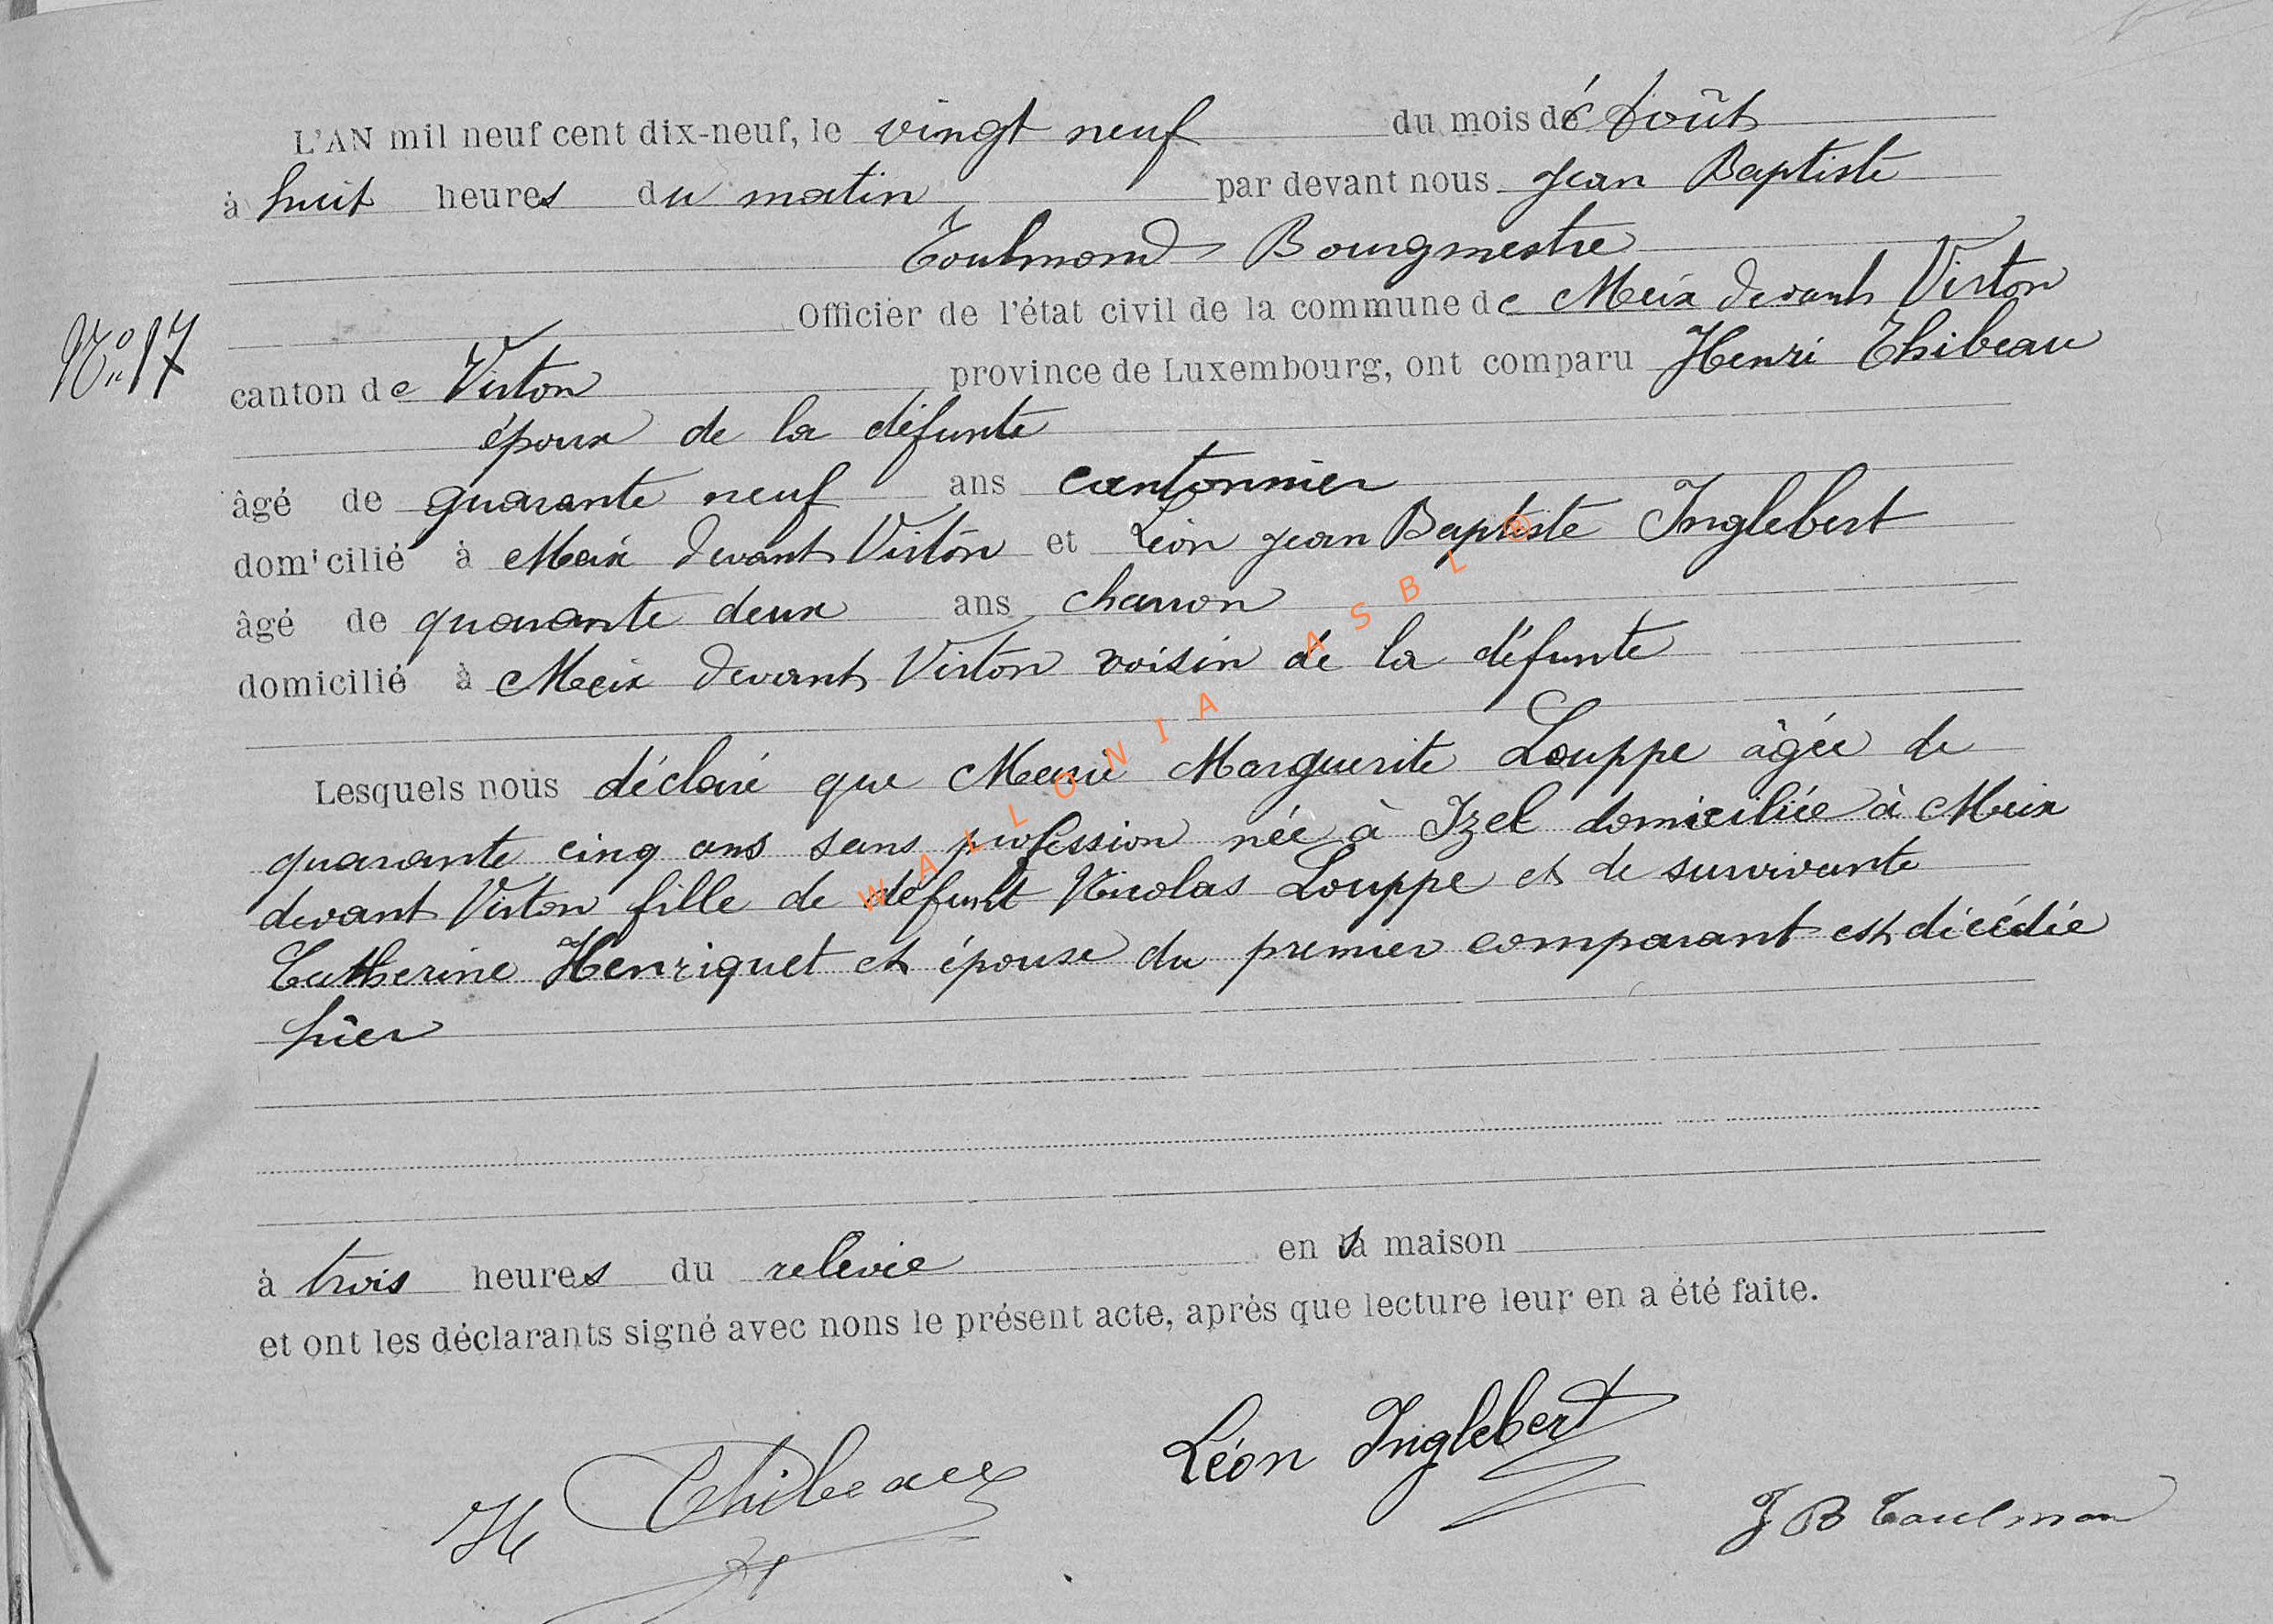 L'AN mil neuf cent dix-neuf, le vingt neuf du mois de Août
à huit heures du matin par devant nous Jean Baptiste
Toulmond Bourgmestre
Officier de l'état civil de la commune de Meix devant Virton
N° 17
canton de Virton province de Luxembourg, ont comparu Henri Thibeau
époux de la défunte
âgé de quarante neuf ans cantonnier
domicilié à Meix devant Virton et Léon Jean Baptiste Inglebert
âgé de quarante deux ans charron
domicilié à Meix devant Virton voisin de la défunte
Lesquels nous déclaré que Marie Marguerite Louppe âgée de
quarante cinq ans sans profession née à Izel domiciliée à Meix
devant Virton fille de défunt Nicolas Louppe et de survivante
Catherine Henriquet et épouse du premier comparant est décédée
hier
à trois heures du relevée en sa maison
et ont les déclarants signé avec nons le présent acte, après que lecture leur en a été faite.
H Thibeaux
Léon Inglebert
J B Toulmon
WALLONIA ASBL ®